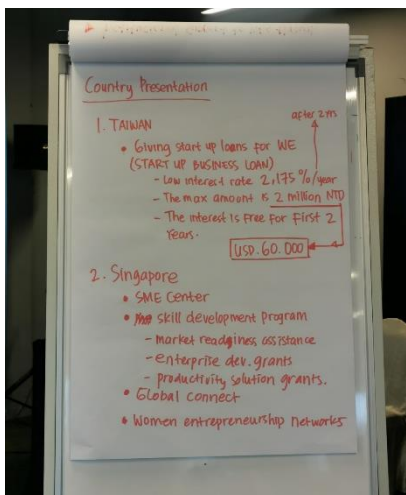 Country Presentation
1. TAIWAN
after 2 yr
• Giving start up loans for WE
(START UP BUSINESS LOAN)
- Low interest rate 2,175 %/year
- The max amount is 2 million NTD
- The interest is Free For First 2
Years.
USD. 60.000
2. Singapore
• SME Center
• skill development program
- market readginess assistance
- enterprise dev. grants
- productivity solution grants.
• Global connect
• Women entrepreneurship networks